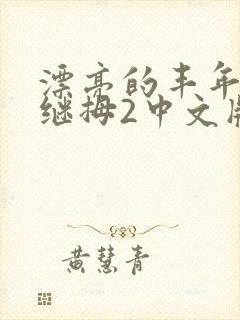 漂亮的丰年
继拇2中文版
黄慧青